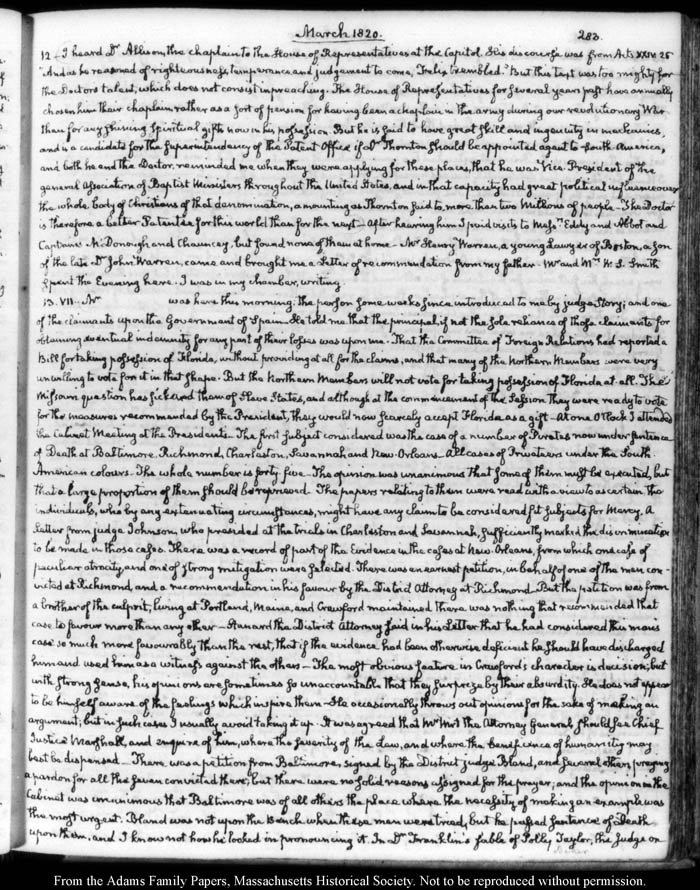 March 1820.
283.
12. I heard Dr Allison, the chaplain to the House of Representatives at the Capitol. His discourse was from Acts XXIV. 25
"And as he reasoned of righteousness, temperance and judgement to come, Felix trembled." But this text was too mighty for
the Doctors talent, which does not consist in preaching. The House of Representatives for several years past have annually
chosen him their chaplain rather as a sort of pension for having been a chaplain in the army during our revolutionary War
than for any shining Spiritual gifts now in his possession. But he is said to have great skill and ingenuity in mechanics,
and is a candidate for the Superintendency of the Patent Office if Dr Thornton should be appointed agent to South-America,
and both he and the Doctor reminded me when they were applying for these places, that he was Vice President of the
general Association of Baptist Ministers throughout the United States, and in that capacity had great political influence over
the whole body of Christians of that denomination, amounting as Thornton said to, more than two Millions of people. The Doctor
is therefore a better Patentee for this world than for the next. After hearing him I paid visits to Messrs Eddy and Abbot and
Captains McDonough and Chauncey, but found none of them at home. Mr Henry Warren, a young Lawyer of Boston, a Son
of the late Dr John Warren, came and brought me a Letter of recommendation from my father. Mr and Mrs W. S. Smith
spent the Evening here. I was in my chamber, writing
13. VII. Mr was here this morning: the person some weeks since introduced to me by judge Story; and one
of the claimants upon the Government of Spain. He told me that the principal, if not the sole reliance of those claimants for
obtaining eventual indemnity for any part of their losses was upon me. That the Committee of Foreign Relations had reported a
Bill for taking possession of Florida, without providing at all for the claims, and that many of the Northern Members were very
unwilling to vote for it in that shape. But the Northern Members will not vote for taking possession of Florida at all. The
Missouri question has sickened them of Slave States, and although at the commencement of the Session they were ready to vote
for the measures recommended by the President, they would now scarcely accept Florida as a gift. At one O'Clock I attended
the Cabinet Meeting at the Presidents. The first subject considered was the case of a number of Pirates now under sentence
of Death at Baltimore, Richmond, Charleston, Savannah and New-Orleans. All cases of Privateers under the South
American colours. The whole number is forty five. The opinion was unanimous that some of them must be executed, but
that a large proportion of them should be reprieved. The papers relating to them were read with a view to ascertain the
individuals, who by any extenuating circumstances, might have any claim to be considered fit subjects for Mercy. A
Letter from judge Johnson, who presided at the trials in Charleston and Savannah, sufficiently marked the discrimination
to be made in those cases. There was a record of part of the Evidence in the cases at New Orleans, from which one case of
peculiar atrocity, and one of strong mitigation were selected. There was an earnest petition, in behalf of one of the men con-
victed at Richmond, and a recommendation in his favour by the District Attorney at Richmond. But the petition was from
a brother of the culprit, living at Portland, Maine, and Crawford maintained there was nothing that recommended that
case to favour more than any other. Stanard the District Attorney said in his Letter that he had considered this man's
case so much more favourably than the rest, that if the evidence had been otherwise deficient he should have discharged
him and used him as a witness against the others. The most obvious feature in Crawford's character is decision; but
with strong sense, his opinions are sometimes so unaccountable that they surprize by their absurdity. He does not appear
to be himself aware of the feelings which inspire them. He occasionally throws out opinions for the sake of making an
argument; but in such cases I usually avoid taking it up. It was agreed that Mr Wirt the Attorney General should see Chief
Justice Marshall, and enquire of him, where the severity of the Law, and where the beneficence of humanity may
best be dispensed. There was a petition from Baltimore, signed by the District judge Bland, and several others, praying
a pardon for all the seven convicted there; but there were no solid reasons assigned for the prayer; and the opinion in the
Cabinet was unanimous that Baltimore was of all others the place where the necessity of making an example was
the most urgent. Bland was not upon the Bench when these men were tried, but he passed sentence of Death
upon them, and I know not how he looked in pronouncing it. In Dr Franklin's fable of Polly Taylor, the Judge on
From the Adams Family Papers, Massachusetts Historical Society. Not to be reproduced without permission.